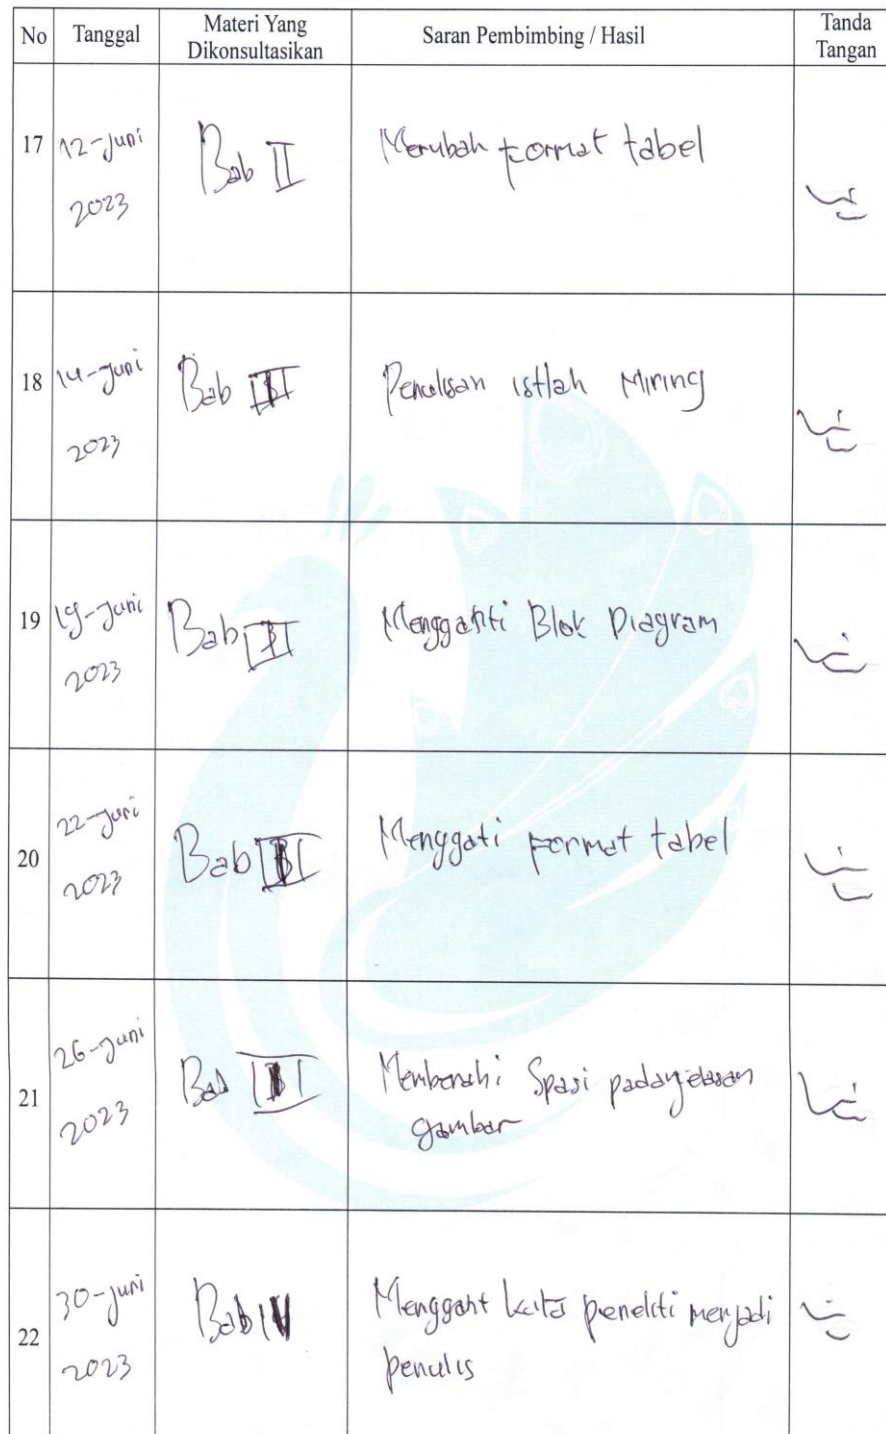 No Tanggal Materi Yang Dikonsultasikan Saran Pembimbing / Hasil Tanda Tangan
17 12-Juni 2023 Bab II Merubah Format tabel
18 14-Juni 2023 Bab III Penulisan istlah Miring
19 19-Juni 2023 Bab III Mengganti Blok Diagram
20 22-Juni 2023 Bab III Menggati Format tabel
21 26-Juni 2023 Bab III Membenahi Spasi
gambar
22 30-Juni 2023 Bab IV Menggant kata peneliti menjadi
penulis